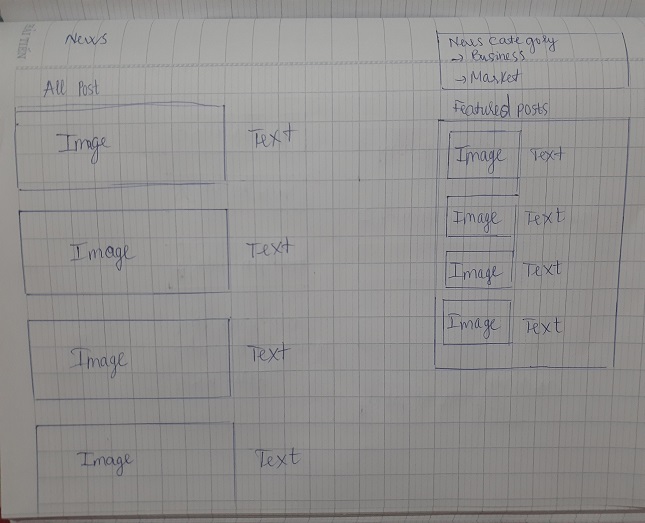 News
All Post
Imge
Text
Image
Text
Image
Text
Image
Text
News category
→ Business
→ Market
Featured posts
Image
Text
Image
Text
Image
Text
Image
Text